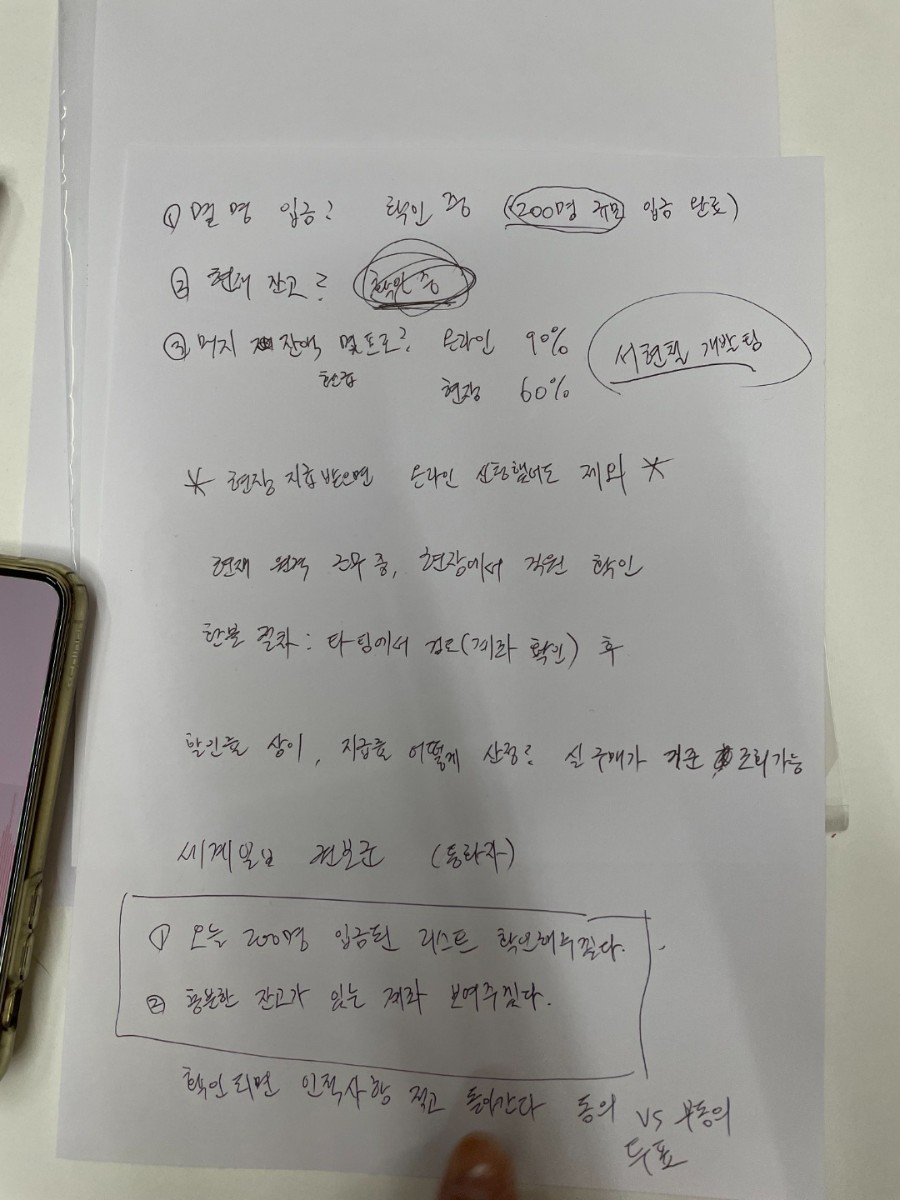 ① 몇 명 입금? 확인 중 (200명 규모 입금 완료)
② 현재 잔고? 확인 중
③ 머지 잔액 몇프로? 온라인 90%
환급 현장 60%
서현필 개발팀
* 현장 지급 받으면 온라인 신청했어도 제외 *
현재 원격 근무 중, 현장에서 직원 확인
환불 절차 : 타 팀에서 검토(계좌 확인) 후
할인율 상이, 지급율 어떻게 산정? 실 구매가 기준 조회가능
세계일보 권보군 (통화자)
① 오늘 200명 입금된 리스트 확인해주낀다.
② 충분한 잔고가 있는 계좌 보여주낀다.
확인 되면 인적사항 적고 돌아간다 동의 vs 부동의
투표